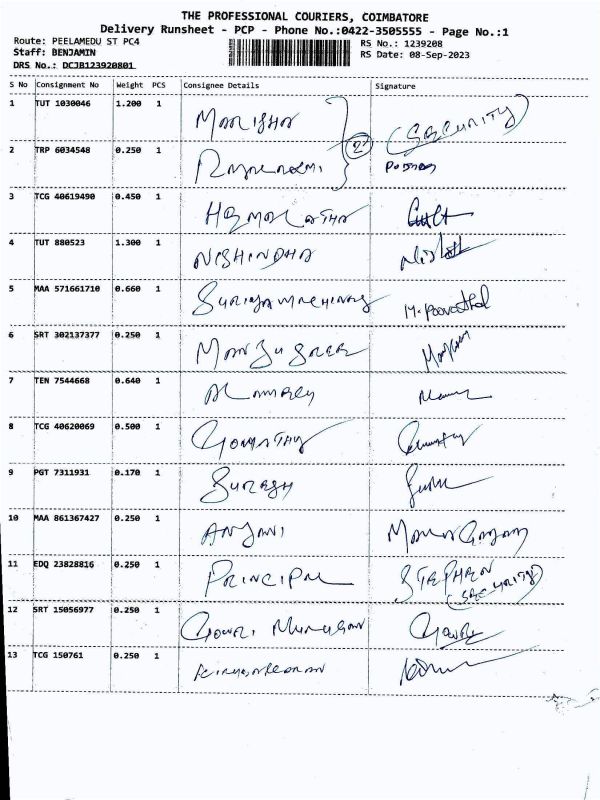 THE PROFESSIONAL COURIERS, COIMBATORE
Delivery Runsheet - PCP - Phone No.:0422-3505555 - Page No.:1
Route: PEELAMEDU ST PC4 RS No.: 1239208
Staff: BENJAMIN RS Date: 08-Sep-2023
DRS No.: DCJB123920801
S No Consignment No Weight PCS Consignee Details Signature
1 TUT 1030046 1.200 1 (SECURITY)
2 TRP 6034548 0.250 1 2
3 TCG 40619490 0.450 1 HEMALATHA
4 TUT 880523 1.300 1 NISHINDHA
5 MAA 571661710 0.660 1
6 SRT 302137377 0.250 1
7 TEN 7544668 0.640 1
8 TCG 40620069 0.500 1 GOMATHY
9 PGT 7311931 0.170 1 SURESH
10 MAA 861367427 0.250 1 ANJANI
11 EDQ 23828816 0.250 1 PRINCIPAL STEPHEN
(SECURITY)
12 SRT 15056977 0.250 1 GOWRI MURUGAN Gowri
13 TCG 150761 0.250 1